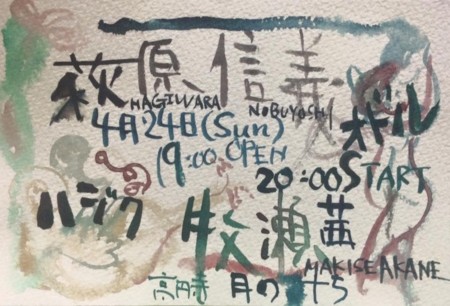 萩原信義
HAGIWARA NOBUYOSHI
4月24日(Sun)
オドル
19:00 OPEN
20:00 START
ハジク
牧瀬茜
MAKISE AKANE
高円寺 月の